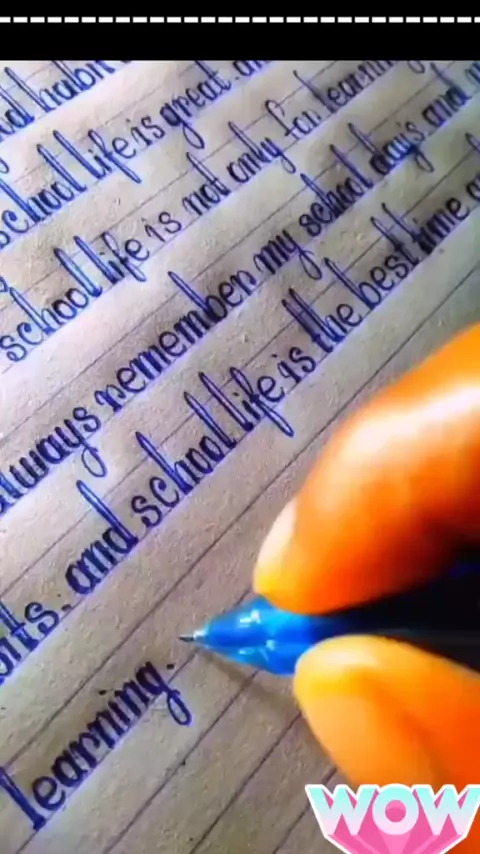 habit
school life is great
school life is not only for learning
always remember my school days and
and school life is the best time
learning.
WOW